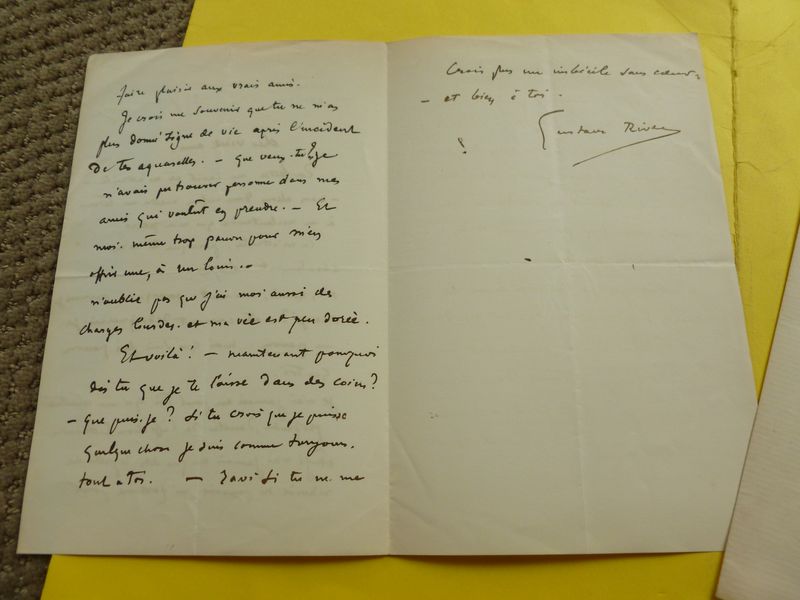 faire plaisir aux vrais amis.
Je crois me souvenir que tu ne m'as
plus donné signe de vie après l'incident
de tes aquarelles. — Que veux-tu? Je
n'avais pu trouver personne dans mes
amis qui voulût en prendre. — Et
moi-même trop pauvre pour m'en
offrir une, à un louis. —
N'oublie pas que j'ai moi aussi des
charges lourdes. et ma vie est peu dorée.
Et voilà! — maintenant pourquoi
dis tu que je te laisse dans des coins?
— Que puis-je? Si tu crois que je puisse
quelque chose je suis comme toujours.
tout à toi. — Ravi si tu ne me
Crois pas un imbécile sans cœur
— et bien à toi.
Gustave